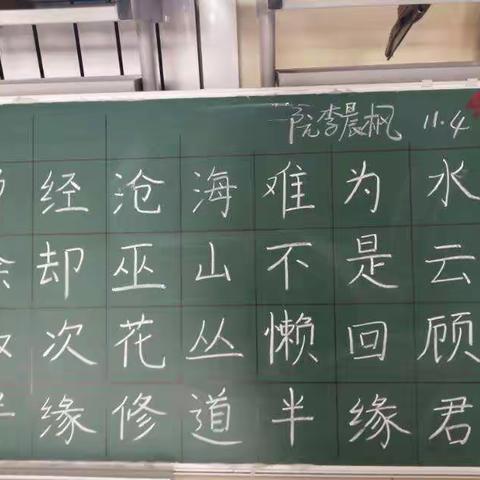 院李晨枫 11.4
经沧海难为水
却巫山不是云
次花丛懒回顾
缘修道半缘君